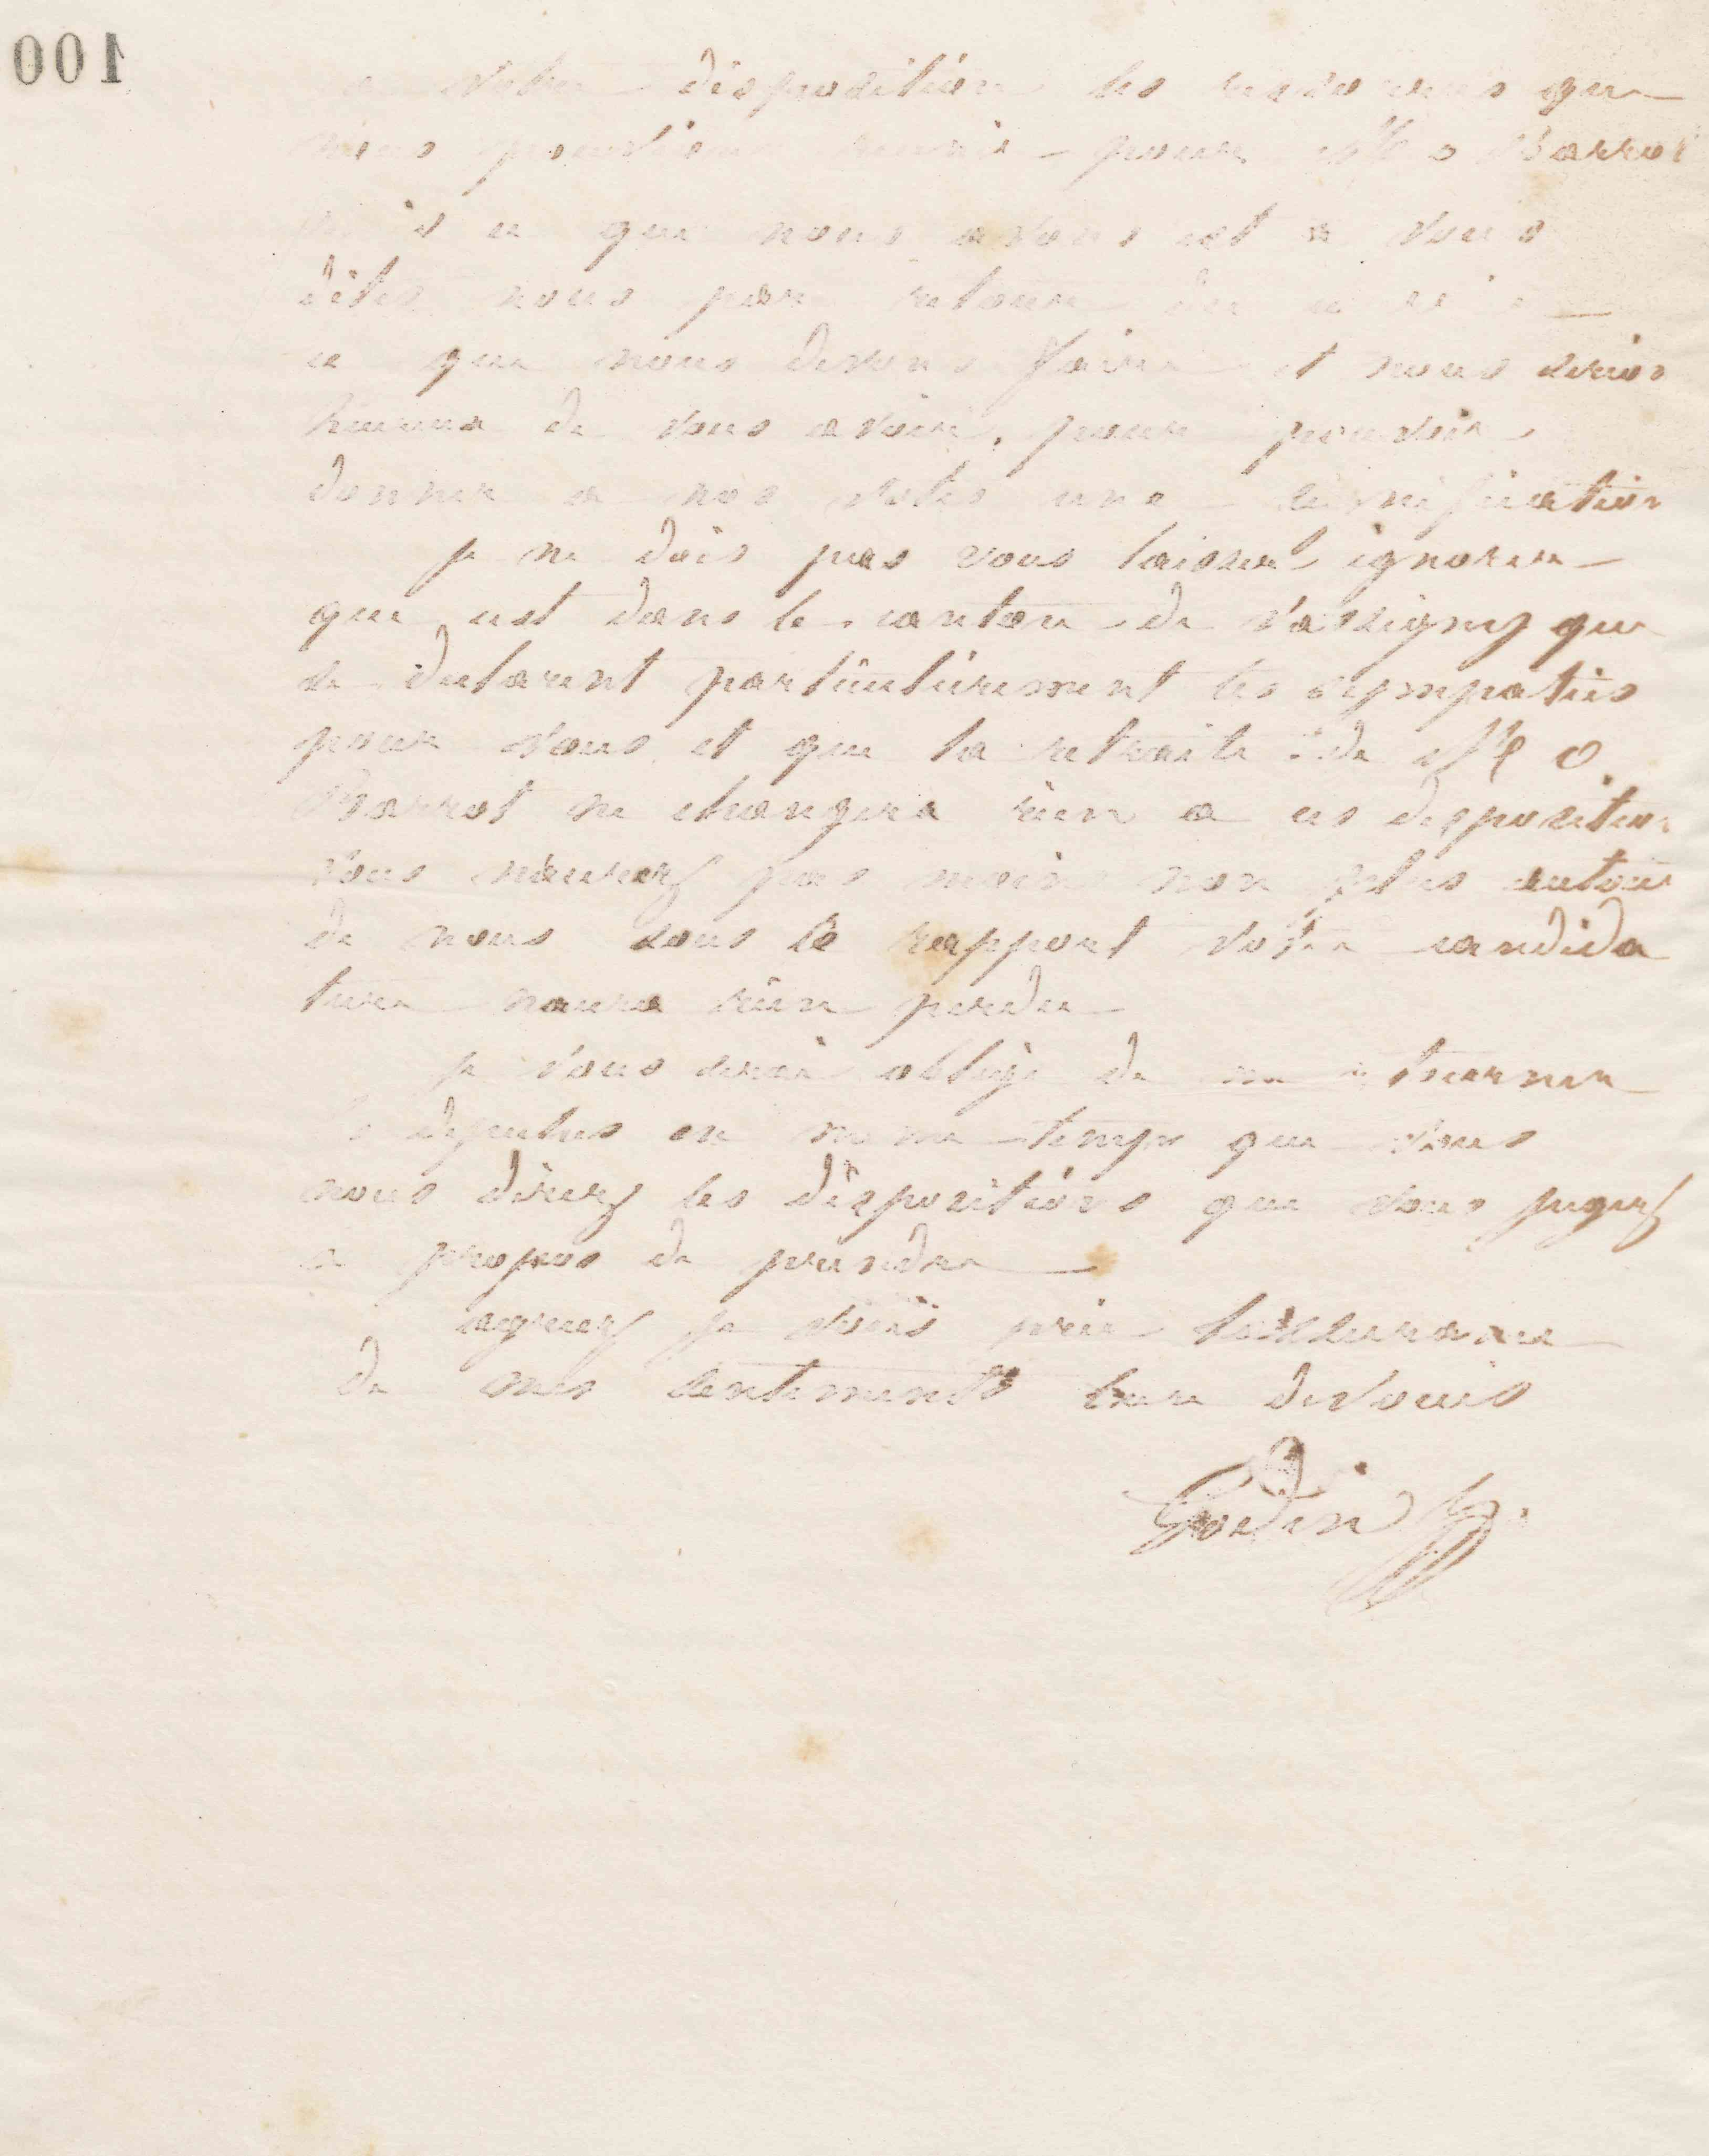 100
a votre disposition les ressources que
nous pouvions pour Mr o Barrot
ce que nous avons est a vous
dites nous par retour du
ce que nous devons faire et nous serions
heureux de vous avoir, pour pouvoir
donner a nos votes une signification
je ne dois pas vous laisser ignorer
que cest dans le canton de Wassigny que
se declarent particulierement les sympaties
pour vous et que la retraite de Mr O.
Barrot ne changera rien a ces disposition
vous naurez pas moins non plus autour
de nous sous le rapport votre candida
ture naura rien perdu
je vous serai obligé de me retourner
le depeches en meme temps que vous
nous direz les dispositions que vous jugez
a propos de prendre
agreez je vous prie lassurance
de mes sentiments bien devoués
Godin